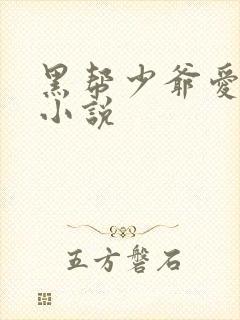 黑帮少爷愛
小說
五方磐石